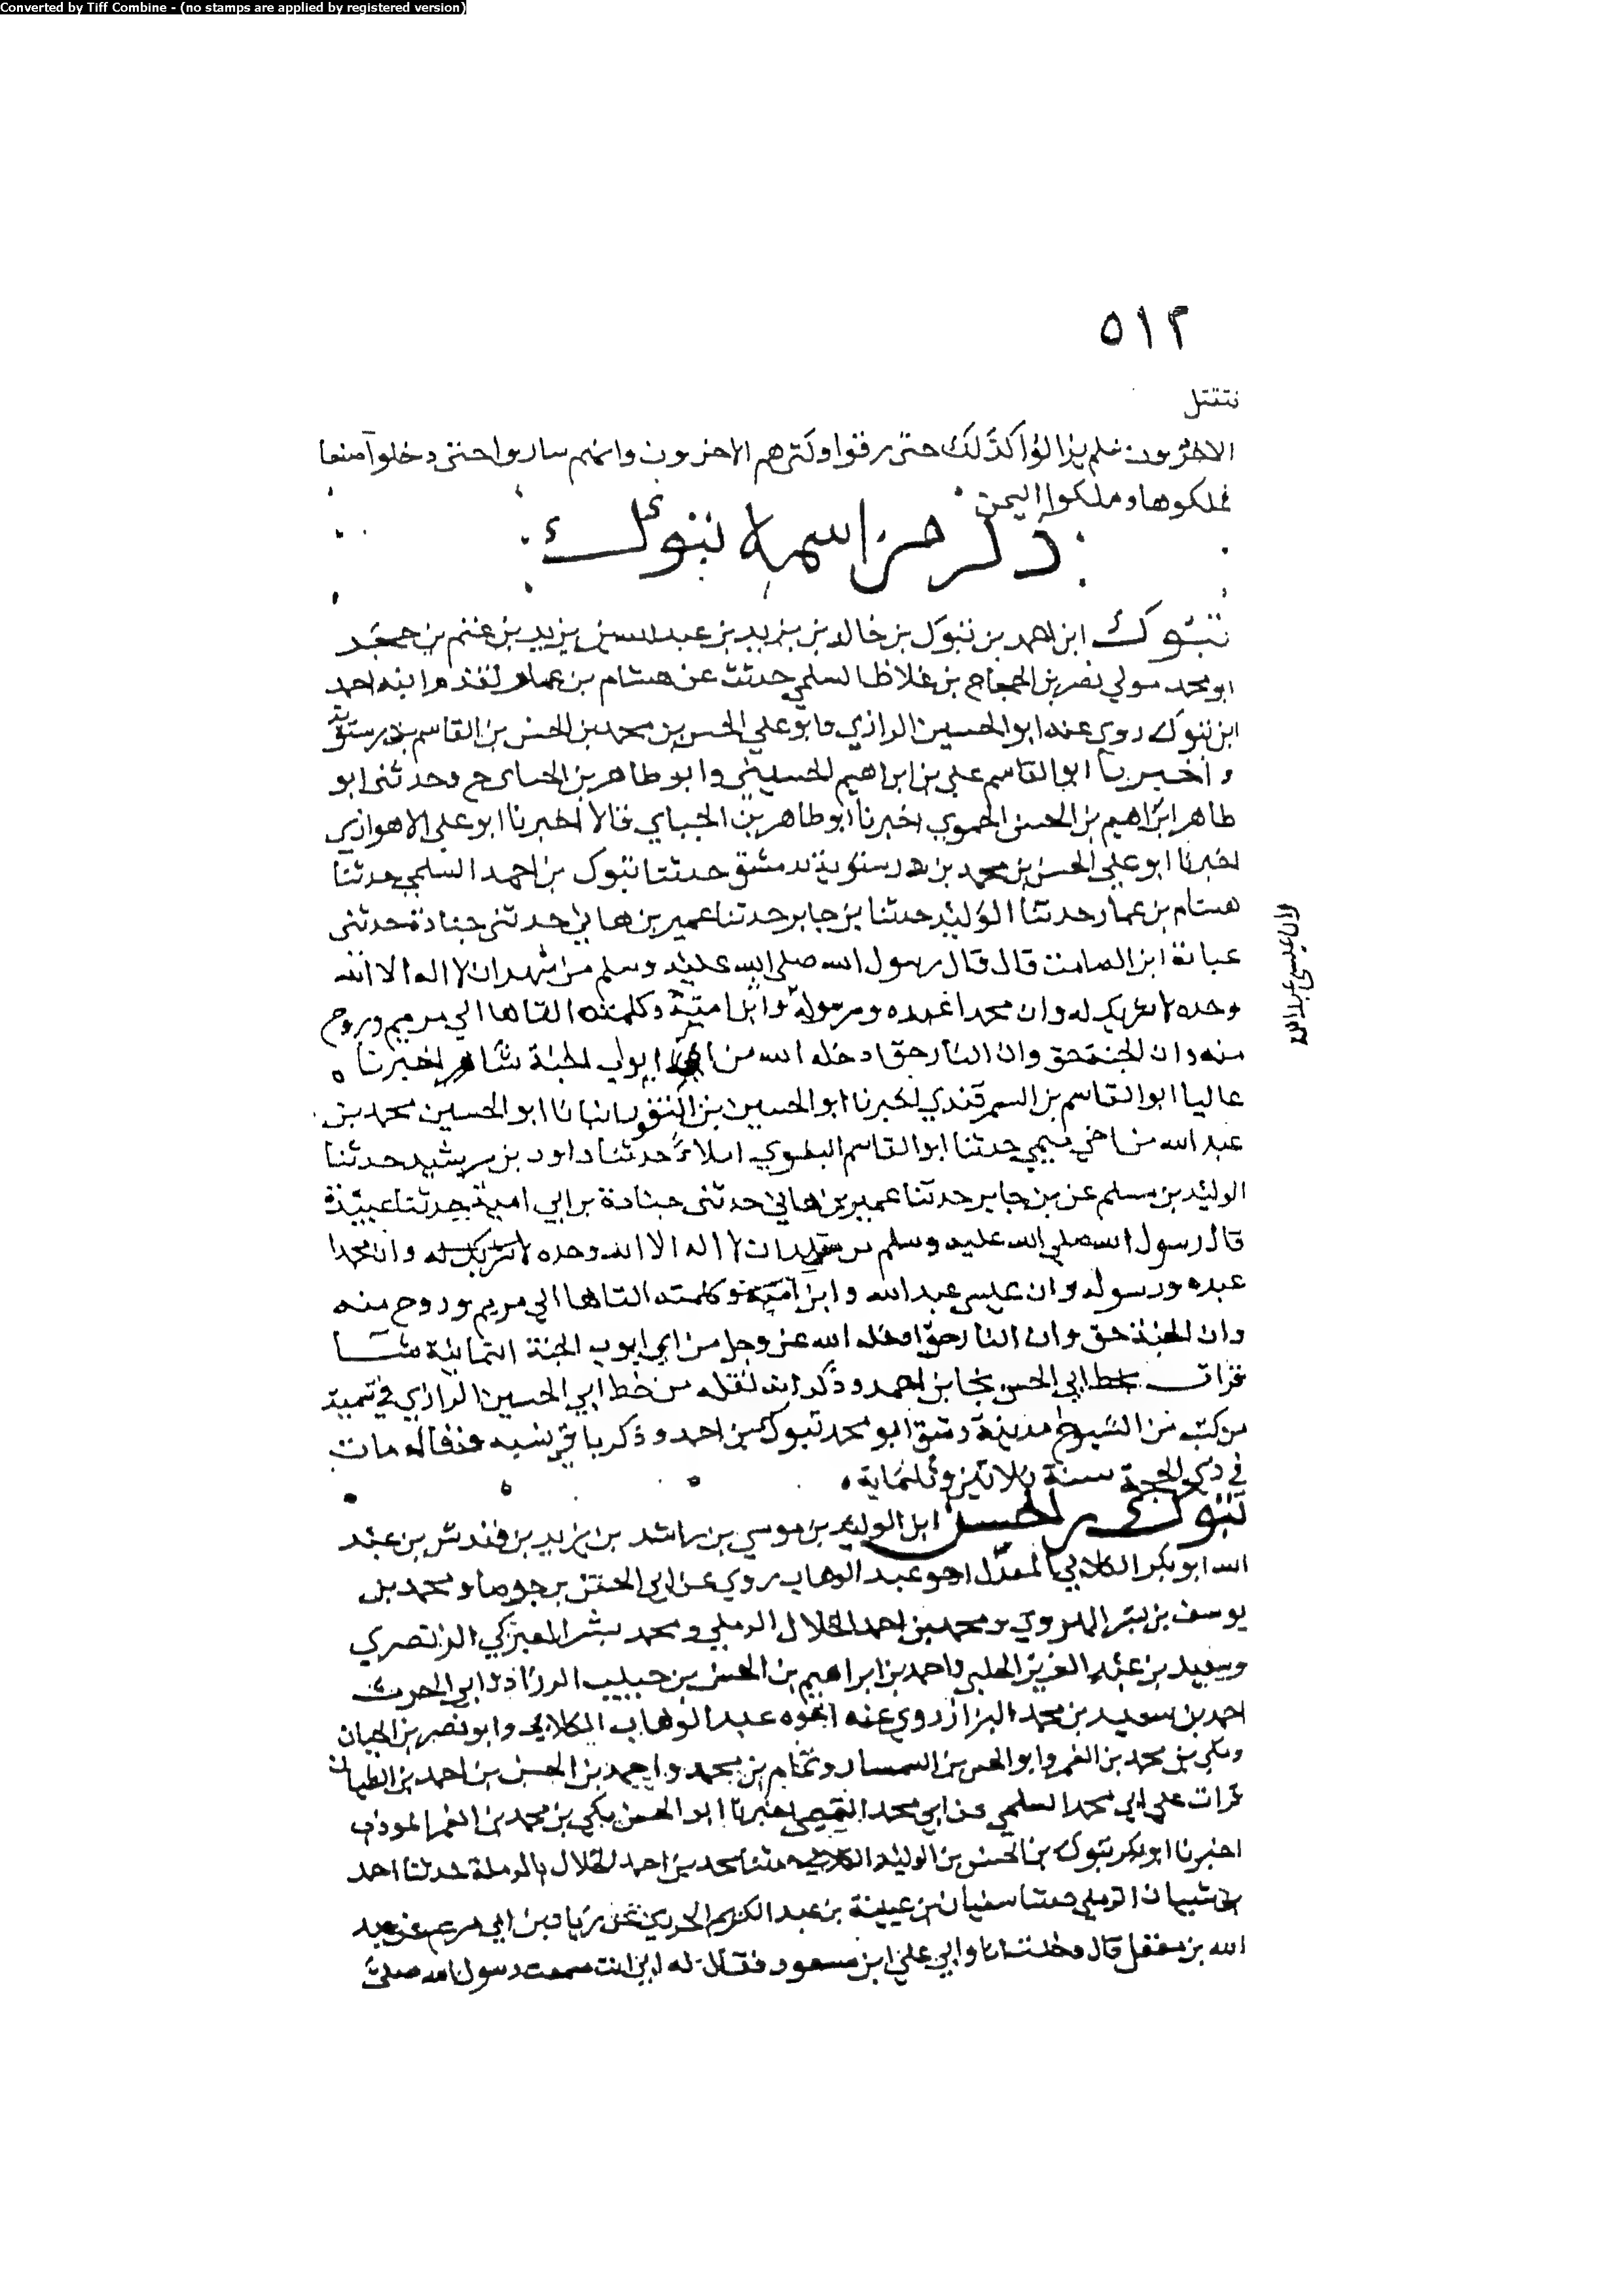 Converted by Tiff Combine - (no stamps are applied by registered version)
٥١٢
نتقتل
الاخرون فلم يزالوا كذلك حتى رقوا وكثرهم الاخرون وانهم ساروا حتى دخلوا صنعا
فملكوها وملكوا اليمن
ذكر من اسمه تبوك
تبوك ابن احمد بن تبوك بن خالد بن يزيد بن عبد الله بن يزيد بن غنم بن حجد
ابو محمد مولي نصر بن الحجاج بن علاط السلمي حدث عن هشام بن عمار تقدم ابنه احمد
ابن تبوك روي عنه ابو الحسين الرازي وابو علي الحسن بن محمد بن الحسن بن القاسم بن درستويه
واخبرنا ابو القاسم علي بن ابراهيم الحسيني وابو طاهر بن الحناي ح وحدثني ابو
طاهر ابراهيم بن الحسن الحموي اخبرنا ابو طاهر بن الحباي قالا اخبرنا ابو علي الاهوازي
اخبرنا ابو علي الحسن بن محمد بن درستويه بدمشق حدثنا تبوك بن احمد السلمي حدثنا
هشام بن عمار حدثنا الوليد حدثنا بن جابر حدثنا عمير بن هاني حدثني جنادة حدثني
عبادة ابن الصامت قال قال رسول الله صلى الله عليه وسلم من شهد ان لا اله الا الله
وحده لا شريك له وان محمدا عبده ورسوله وابن امته وكلمته القاها الي مريم وروح
لان عيسى عبد الله
منه وان الجنة حق وان النار حق ادخله الله من اي ابواب الجنة شاء اخبرنا ه
عاليا ابو القاسم بن السمرقندي اخبرنا ابو الحسين بن النقور انبانا ابو الحسين محمد بن
عبد الله من اخي ميمي حدثنا ابو القاسم البغوي املاء حدثنا داود بن رشيد حدثنا
الوليد بن مسلم عن بن جابر حدثنا عمير بن هاني حدثني جنادة بن ابي امية حدثنا عبادة
قال رسول الله صلى الله عليه وسلم من شهد ان لا اله الا الله وحده لا شريك له وان محمدا
عبده ورسوله وان عيسى عبد الله وابن امته وكلمته القاها الي مريم وروح منه
وان الجنة حق وان النار حق ادخله الله عز وجل من اي ابواب الجنة الثمانية شا
قرات بخط ابي الحسن نجا بن احمد وذكر انه نقله من خط ابي الحسين الرازي في تسمية
من كتب من الشيوخ مدينة دمشق ابو محمد تبوك بن احمد وذكر باقي نسبه وقال مات
في ذي الحجة سنة ثلاثين وثلثماية
تبوك بن الحسن ابن الوليد بن موسي بن راشد بن يزيد بن فندش بن عبد
الله ابو بكر الكلابي المعدل اخو عبد الوهاب روي عن ابي الحسن بن جوصا ومحمد بن
يوسف بن بشر الهروي ومحمد بن احمد الخلال الرملي ومحمد بشر العكري
وسعيد بن عبد العزيز الحلبي واحمد بن ابراهيم بن الحسن بن حبيب الزراد وابي الحرث
احمد بن سعيد بن محمد البزاز روي عنه اخوه عبد الوهاب الكلابي وابو نصر بن الجبان
ومكي بن محمد بن الغمر وابو الحسن بن السمسار وتمام بن محمد واحمد بن الحسن بن احمد بن الطيان
قرات علي ابي محمد السلمي عن ابي محمد التميمي اخبرنا ابو الحسن مكي بن محمد بن الغمر المودب
اخبرنا ابو بكر تبوك بن الحسن بن الوليد الكلابي حدثنا محمد بن احمد الخلال بالرملة حدثنا احمد
بن شيبان الرملي حدثنا سفيان بن عيينة بن عبد الكريم الجزري عن زياد بن ابي مريم عن عبد
الله بن معقل قال دخلت انا وابي علي ابن مسعود فقال له ابي انت سمعت رسول الله صلى